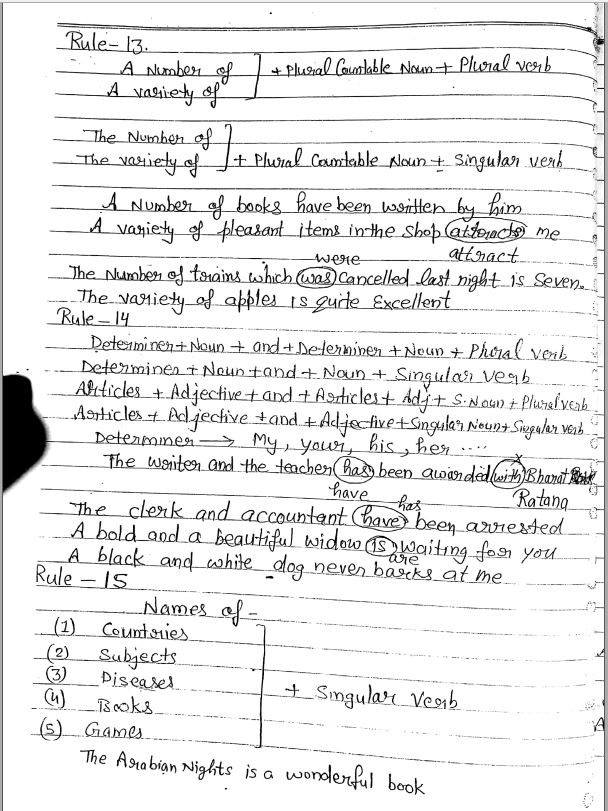 Rule-13.
A Number of
+ Plural Countable Noun + Plural verb
A variety of
The Number of
The variety of + Plural Countable Noun + Singular verb
A Number of books have been written by him
A variety of pleasant items in the shop attracts me
attract
were
The Number of trains which was cancelled last night is seven.
The variety of apples is quite Excellent
Rule-14
Determiner + Noun + and + Determiner + Noun + Plural verb
Determiner + Noun + and + Noun + Singular verb
Articles + Adjective + and + Articles + Adj + S. Noun + Plural verb
Articles + Adjective + and + Adjective + Singular Noun + Singular verb
Determiner → My, your, his, her ....
x
The writer and the teacher has been awarded with Bharat
have Ratana
has
The clerk and accountant have been arrested
A bold and a beautiful widow is waiting for you
are
A black and white dog never barks at me
Rule - 15
Names of -
(1) Countries
(2) Subjects
(3) Diseases
+ Singular Verb
(4) Books
(5) Games
The Arabian Nights is a wonderful book